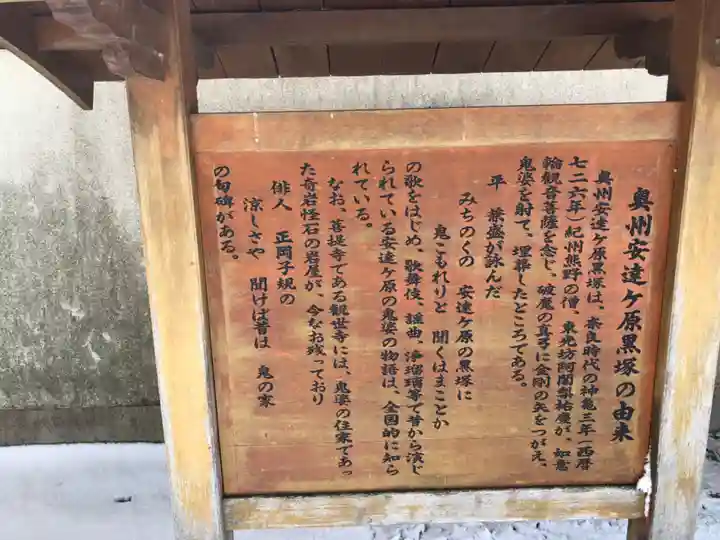 奥州安達ケ原黒塚の由来
奥州安達ケ原黒塚は、奈良時代の神亀三年(西暦
七二六年)紀州熊野の僧、東光坊阿闍梨祐慶が、如意
輪観音菩薩を念じ、破魔の真弓に金剛の矢をつがえ、
鬼婆を射て、埋葬したところである。
平 兼盛が詠んだ
みちのくの 安達ケ原の黒塚に
鬼こもれりと 聞くはまことか
の歌をはじめ、歌舞伎、謡曲、浄瑠璃等で昔から演じ
られている安達ケ原の鬼婆の物語は、全国的に知ら
れている。
なお、菩提寺である観世寺には、鬼婆の住家であっ
た奇岩怪石の岩屋が、今なお残っており
俳人 正岡子規の
涼しさや 聞けば昔は 鬼の家
の句碑がある。